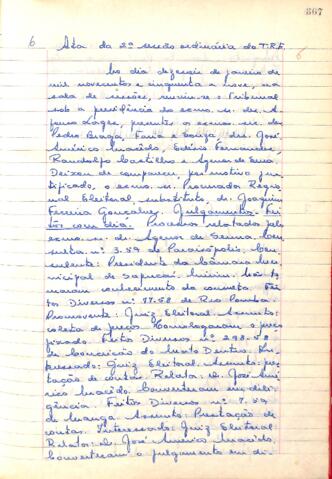 867
6 Ata da 2ª sessão ordinária do T.R.E. 6
No dia dezesseis de janeiro de
mil novecentos e cinquenta e nove, na
sala de sessões, reuniu-se o Tribunal
sob a presidência do exmo. sr. des. A
Lages, presentes os exmos. srs. des.
Pedro Braga, Faria e Souza, drs. José
Américo Macêdo, Edésio Fernandes,
Randolfo Castilho e Agenor de Sena.
Deixou de comparecer, por motivo jus
tificado, o exmo. sr. Procurador Regio
nal Eleitoral, substituto, dr. Joaquim
Ferreira Gonçalves. Julgamentos. Fei
tos com dia. Processos relatados pelo
exmo. sr. dr. Agenor de Senna. Con
sulta nº 3.59 de Paraisópolis. Con
sulente: Presidente da Câmara Mu
nicipal de Sapucaí Mirim. Não to
maram conhecimento da consulta. Fei
tos Diversos nº 77.58 de Rio Pomba.
Promovente: Juiz Eleitoral. Assunto:
coleta de preços. Homologaram o pre
judicado. Feitos Diversos nº 298.58
de Conceição do Mato Dentro. In
teressado: Juiz Eleitoral. Assunto: pres
tação de contas. Relator: Dr. José Amé
rico Macêdo. Converteram em dili
gência. Feitos Diversos nº 7.59
de Manga. Assunto: Prestação de
contas. Interessado: Juiz Eleitoral.
Relator: Dr. José Américo Macêdo.
Converteram o julgamento em di-